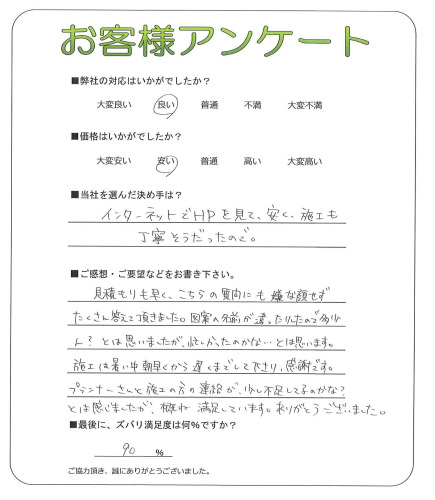 お客様アンケート
■弊社の対応はいかがでしたか？
大変良い 良い 普通 不満 大変不満
■価格はいかがでしたか？
大変安い 安い 普通 高い 大変高い
■当社を選んだ決め手は？
インターネットでHPを見て、安く、施工も
丁寧そうだったので。
■ご感想・ご要望などをお書き下さい。
見積もりも早く、こちらの質問にも嫌な顔せず
たくさん答えて頂きました。図案の名前が違ったりしたので多少
ん？とは思いましたが、忙しかったのかな…とは思います。
施工は暑い中朝早くから遅くまでして下さり、感謝です。
プランナーさんと施工の方の連絡が、少し不足してるのかな？
とは感じましたが、概ね満足しています。ありがとうございました。
■最後に、ズバリ満足度は何％ですか？
90 ％
ご協力頂き、誠にありがとうございました。